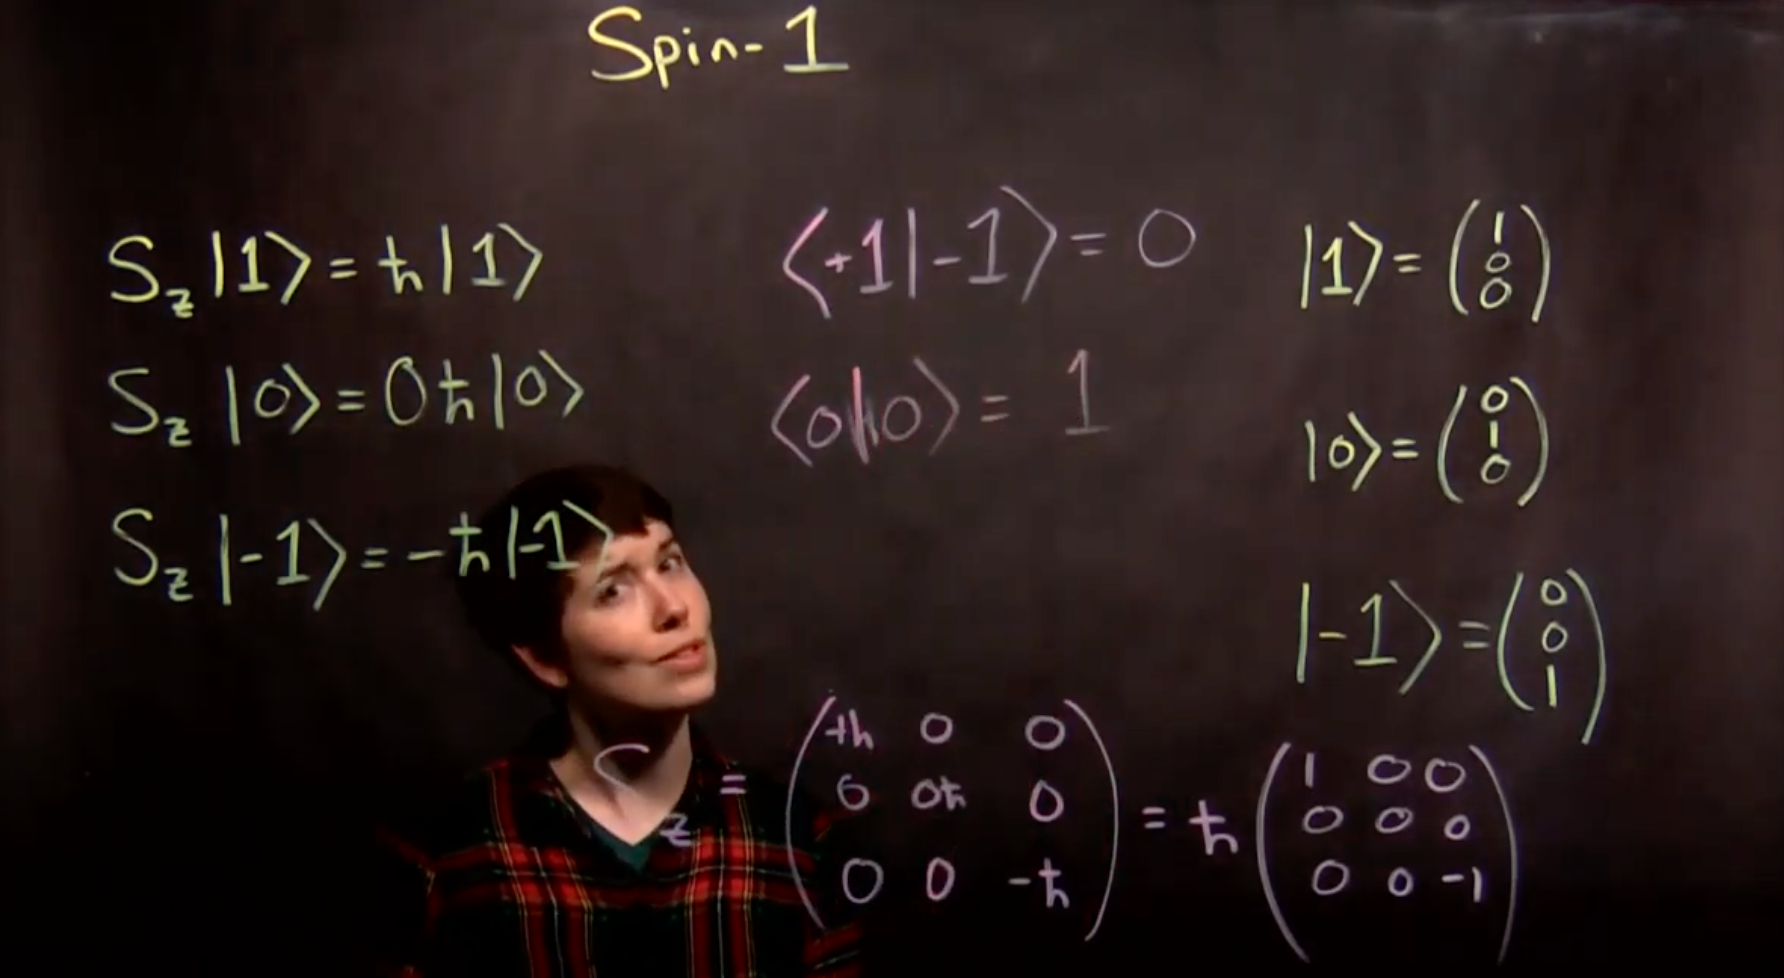 Spin-1
S_z |1⟩ = ħ |1⟩
S_z |0⟩ = 0ħ |0⟩
S_z |-1⟩ = -ħ |-1⟩
⟨+1|-1⟩ = 0
⟨0|0⟩ = 1
|1⟩ = (1 0 0)
|0⟩ = (0 1 0)
|-1⟩ = (0 0 1)
S_z = (+ħ 0 0
0 0ħ 0
0 0 -ħ) = ħ (1 0 0
0 0 0
0 0 -1)